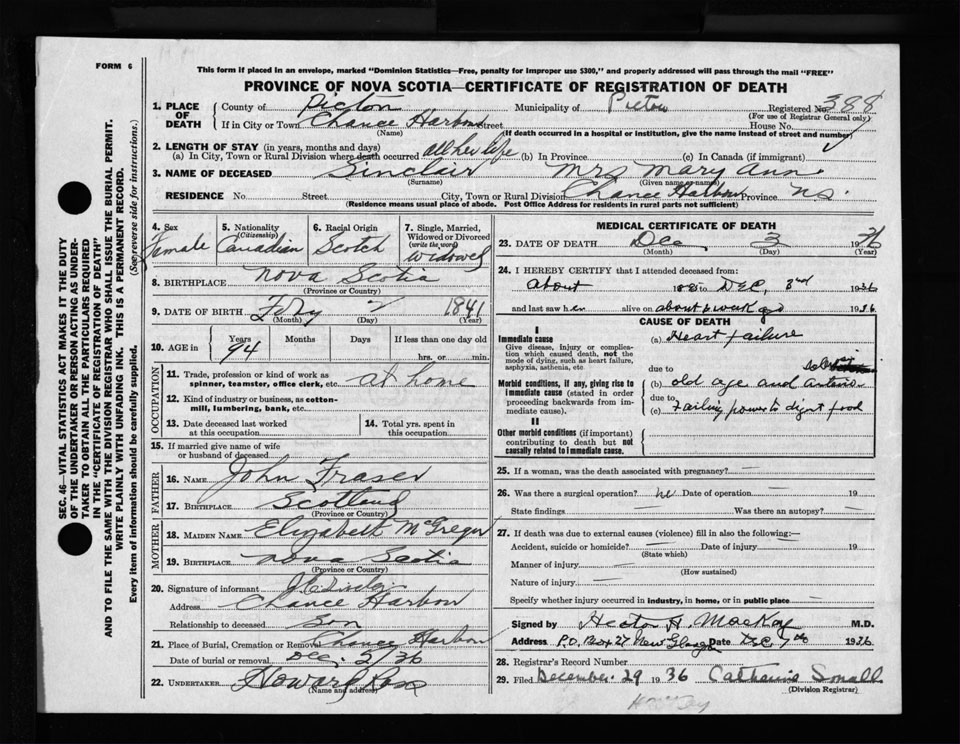 FORM 6
This form if placed in an envelope, marked "Dominion Statistics—Free, penalty for improper use $300," and properly addressed will pass through the mail "FREE"
PROVINCE OF NOVA SCOTIA—CERTIFICATE OF REGISTRATION OF DEATH
1. PLACE OF DEATH
County of Pictou Municipality of Pictou Registered No. 388
(For use of Registrar General only)
If in City or Town Chance Harbour Street House No.
(Name) (If death occurred in a hospital or institution, give the name instead of street and number)
2. LENGTH OF STAY (in years, months and days)
(a) In City, Town or Rural Division where death occurred all her life (b) In Province (c) In Canada (if immigrant)
3. NAME OF DECEASED Sinclair Mrs Mary Ann
(Surname) (Given name or names)
RESIDENCE No. Street City, Town or Rural Division Chance Harbour Province N.S.
(Residence means usual place of abode. Post Office Address for residents in rural parts not sufficient)
4. Sex Female
5. Nationality (Citizenship) Canadian
6. Racial Origin Scotch
7. Single, Married, Widowed or Divorced (write the word) Widowed
8. BIRTHPLACE Nova Scotia
(Province or Country)
9. DATE OF BIRTH 2 1841
(Month) (Day) (Year)
10. AGE in Years 94 Months Days If less than one day old hrs. or min.
OCCUPATION
11. Trade, profession or kind of work as spinner, teamster, office clerk, etc. at home
12. Kind of industry or business, as cotton-mill, lumbering, bank, etc.
13. Date deceased last worked at this occupation
14. Total yrs. spent in this occupation
15. If married give name of wife or husband of deceased
FATHER
16. NAME John Fraser
17. BIRTHPLACE Scotland
(Province or Country)
MOTHER
18. MAIDEN NAME Elizabeth McGregor
19. BIRTHPLACE Nova Scotia
(Province or Country)
20. Signature of informant
Address Chance Harbour
Relationship to deceased Son
21. Place of Burial, Cremation or Removal Chance Harbour
Date of burial or removal Dec. 5/36
22. UNDERTAKER Howard Ross
(Name and address)
MEDICAL CERTIFICATE OF DEATH
23. DATE OF DEATH Dec 3 1936
(Month) (Day) (Year)
24. I HEREBY CERTIFY that I attended deceased from:
About to Dec. 3rd 1936
and last saw her alive on about 1936
CAUSE OF DEATH
I
Immediate cause
Give disease, injury or complication which caused death, not the mode of dying, such as heart failure, asphyxia, asthenia, etc.
(a) Heart failure
due to
Morbid conditions, if any, giving rise to immediate cause (stated in order proceeding backwards from immediate cause).
(b) old age and
due to
(c) Failing power to digest food
II
Other morbid conditions (if important) contributing to death but not causally related to immediate cause.
25. If a woman, was the death associated with pregnancy? —
26. Was there a surgical operation? no Date of operation — 19
State findings — Was there an autopsy? —
27. If death was due to external causes (violence) fill in also the following:—
Accident, suicide or homicide? — Date of injury — 19
(State which)
Manner of injury —
(How sustained)
Nature of injury —
Specify whether injury occurred in industry, in home, or in public place —
Signed by Hector H. MacKay M.D.
Address P.O. Box 27 New Glasgow Date Dec 7th 1936
28. Registrar's Record Number
29. Filed December 29 1936 Catherine Small
(Division Registrar)
SEC. 46—VITAL STATISTICS ACT MAKES IT THE DUTY
OF THE UNDERTAKER OR PERSON ACTING AS UNDER-
TAKER TO OBTAIN ALL THE PARTICULARS REQUIRED
IN THE "CERTIFICATE OF REGISTRATION OF DEATH"
AND TO FILE THE SAME WITH THE DIVISION REGISTRAR WHO SHALL ISSUE THE BURIAL PERMIT.
WRITE PLAINLY WITH UNFADING INK. THIS IS A PERMANENT RECORD.
Every item of information should be carefully supplied. (See reverse side for instructions.)